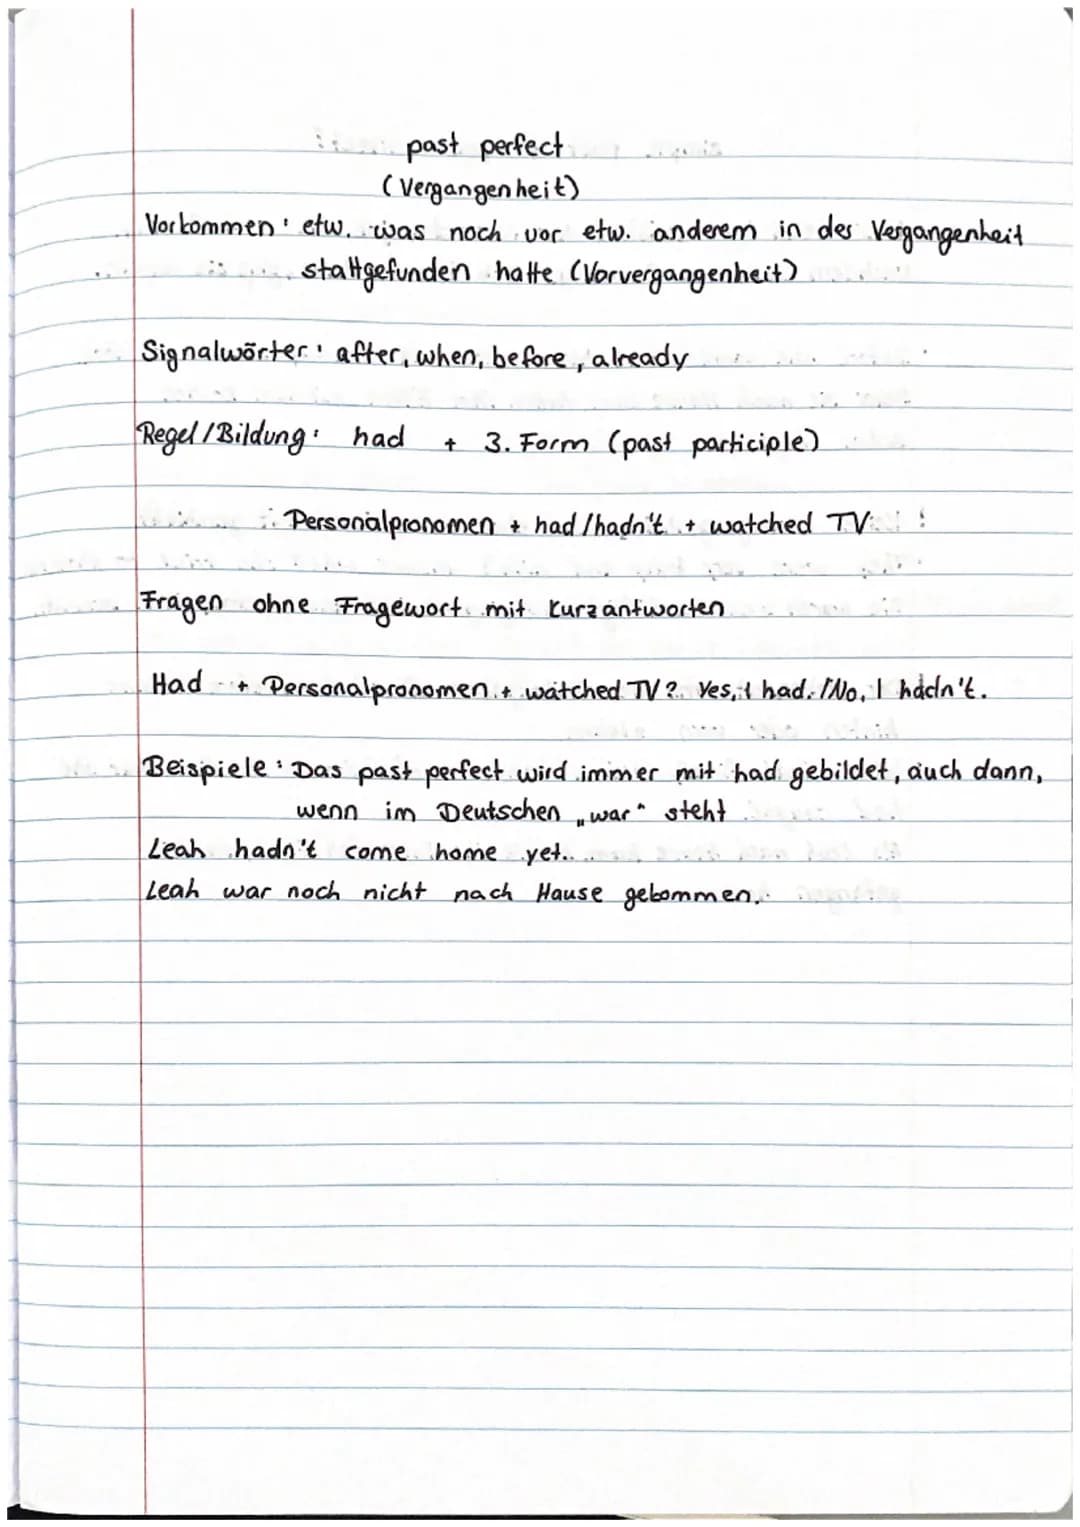 past perfect
(Vergangenheit)
Vorkommen: etw. was noch vor etw. anderem in der Vergangenheit
stattgefunden hatte (Vorvergangenheit)
Signalwörter: after, when, before, already
Regel/Bildung: had + 3. Form (past participle)
: Personalpronomen + had/hadn't + watched TV
Fragen ohne Fragewort mit Kurzantworten
Had + Personalpronomen + watched TV? Yes, I had. / No, I hadn't.
Beispiele: Das past perfect wird immer mit had gebildet, auch dann,
wenn im Deutschen „war" steht
Leah hadn't come home yet.
Leah war noch nicht nach Hause gekommen.